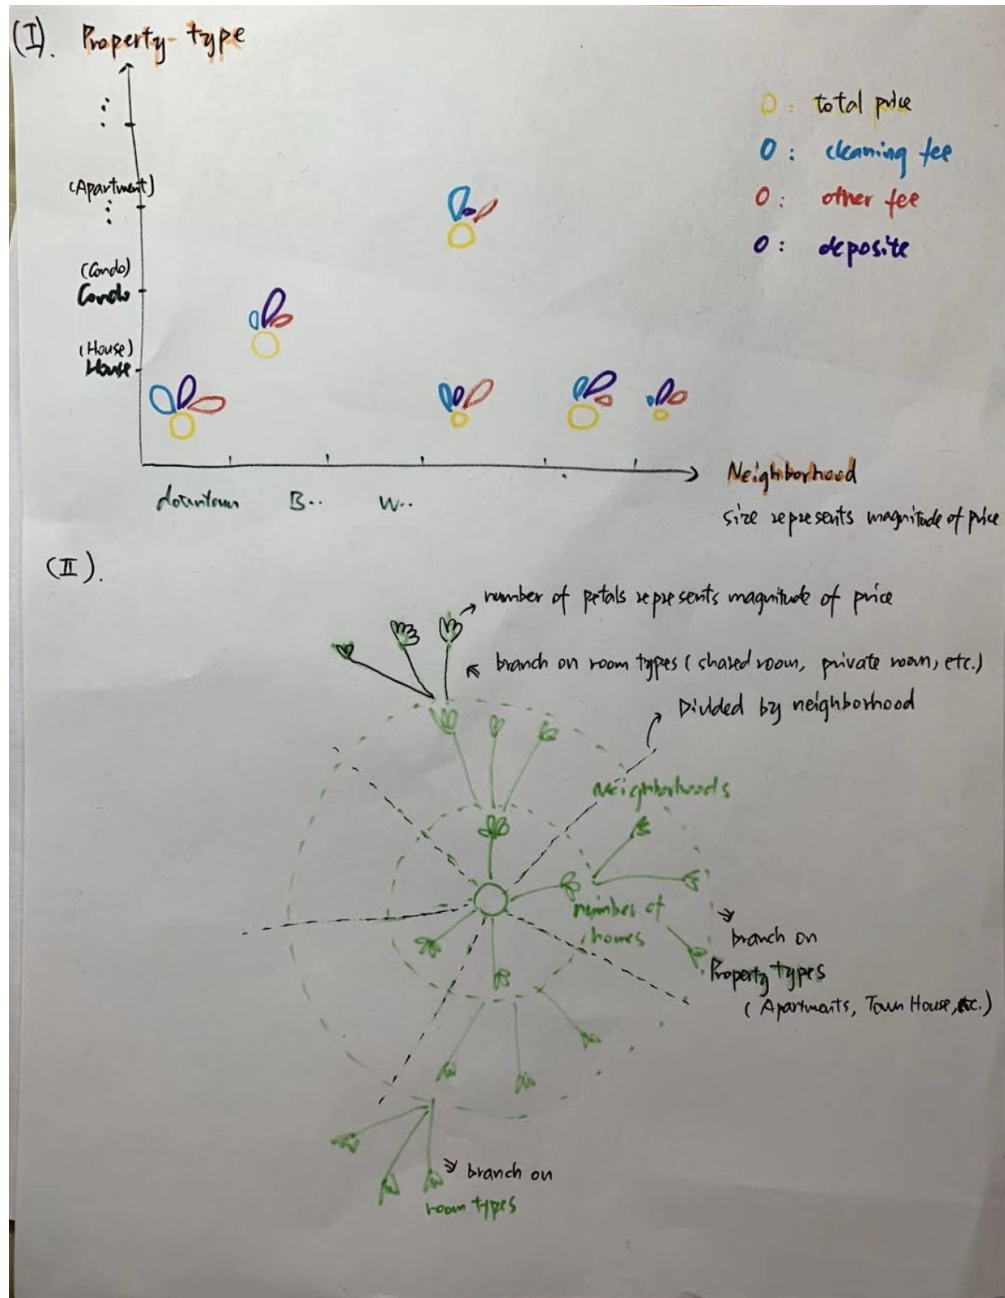 (I). Property type
0 : total price
0 : cleaning fee
0 : other fee
0 : deposite
(Apartment)
(Condo)
Condo
(House)
House
Neighborhood
downtown B.. W..
size represents magnitude of price
(II).
number of petals represents magnitude of price
branch on room types (shared room, private room, etc.)
Divided by neighborhood
Neighborhoods
number of
homes
branch on
Property types
(Apartments, Town House, etc.)
branch on
room types